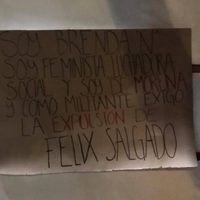 SOY BRENDA N
SOY FEMINISTA LUCHADORA
SOCIAL Y SOY DE MORENA
Y COMO MILITANTE EXIGO
LA EXPULSIÓN DE
FELIX SALGADO